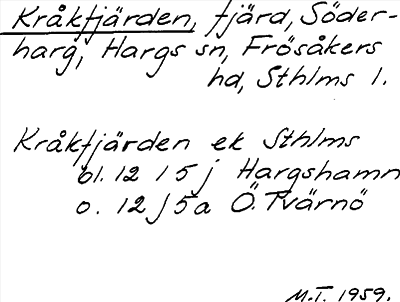 Kråkfjärden, fjärd, Söder-
harg, Hargs sn, Frösåkers
hd, Sthlms l.
Kråkfjärden ek Sthlms
bl. 12 I 5 j Hargshamn
o. 12 J 5 a Ö. Tvärnö
M.T. 1959.